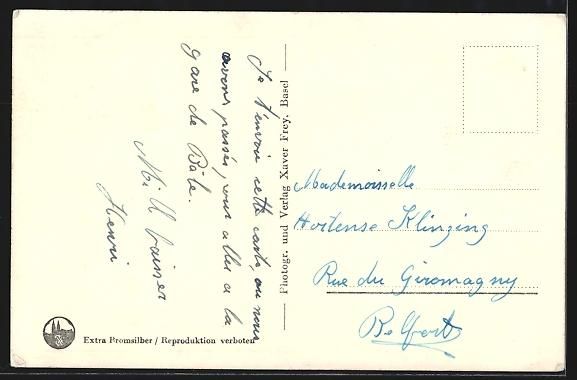 Je t'envoie cette carte, ou nous
avons passés, pour aller a la
gare de Bâle.
Mill baiser
Henri
Photogr. und Verlag Xaver Frey, Basel
Mademoiselle
Hortense Klinzing
Rue du Giromagny
Belfort
Extra Bromsilber / Reproduktion verboten